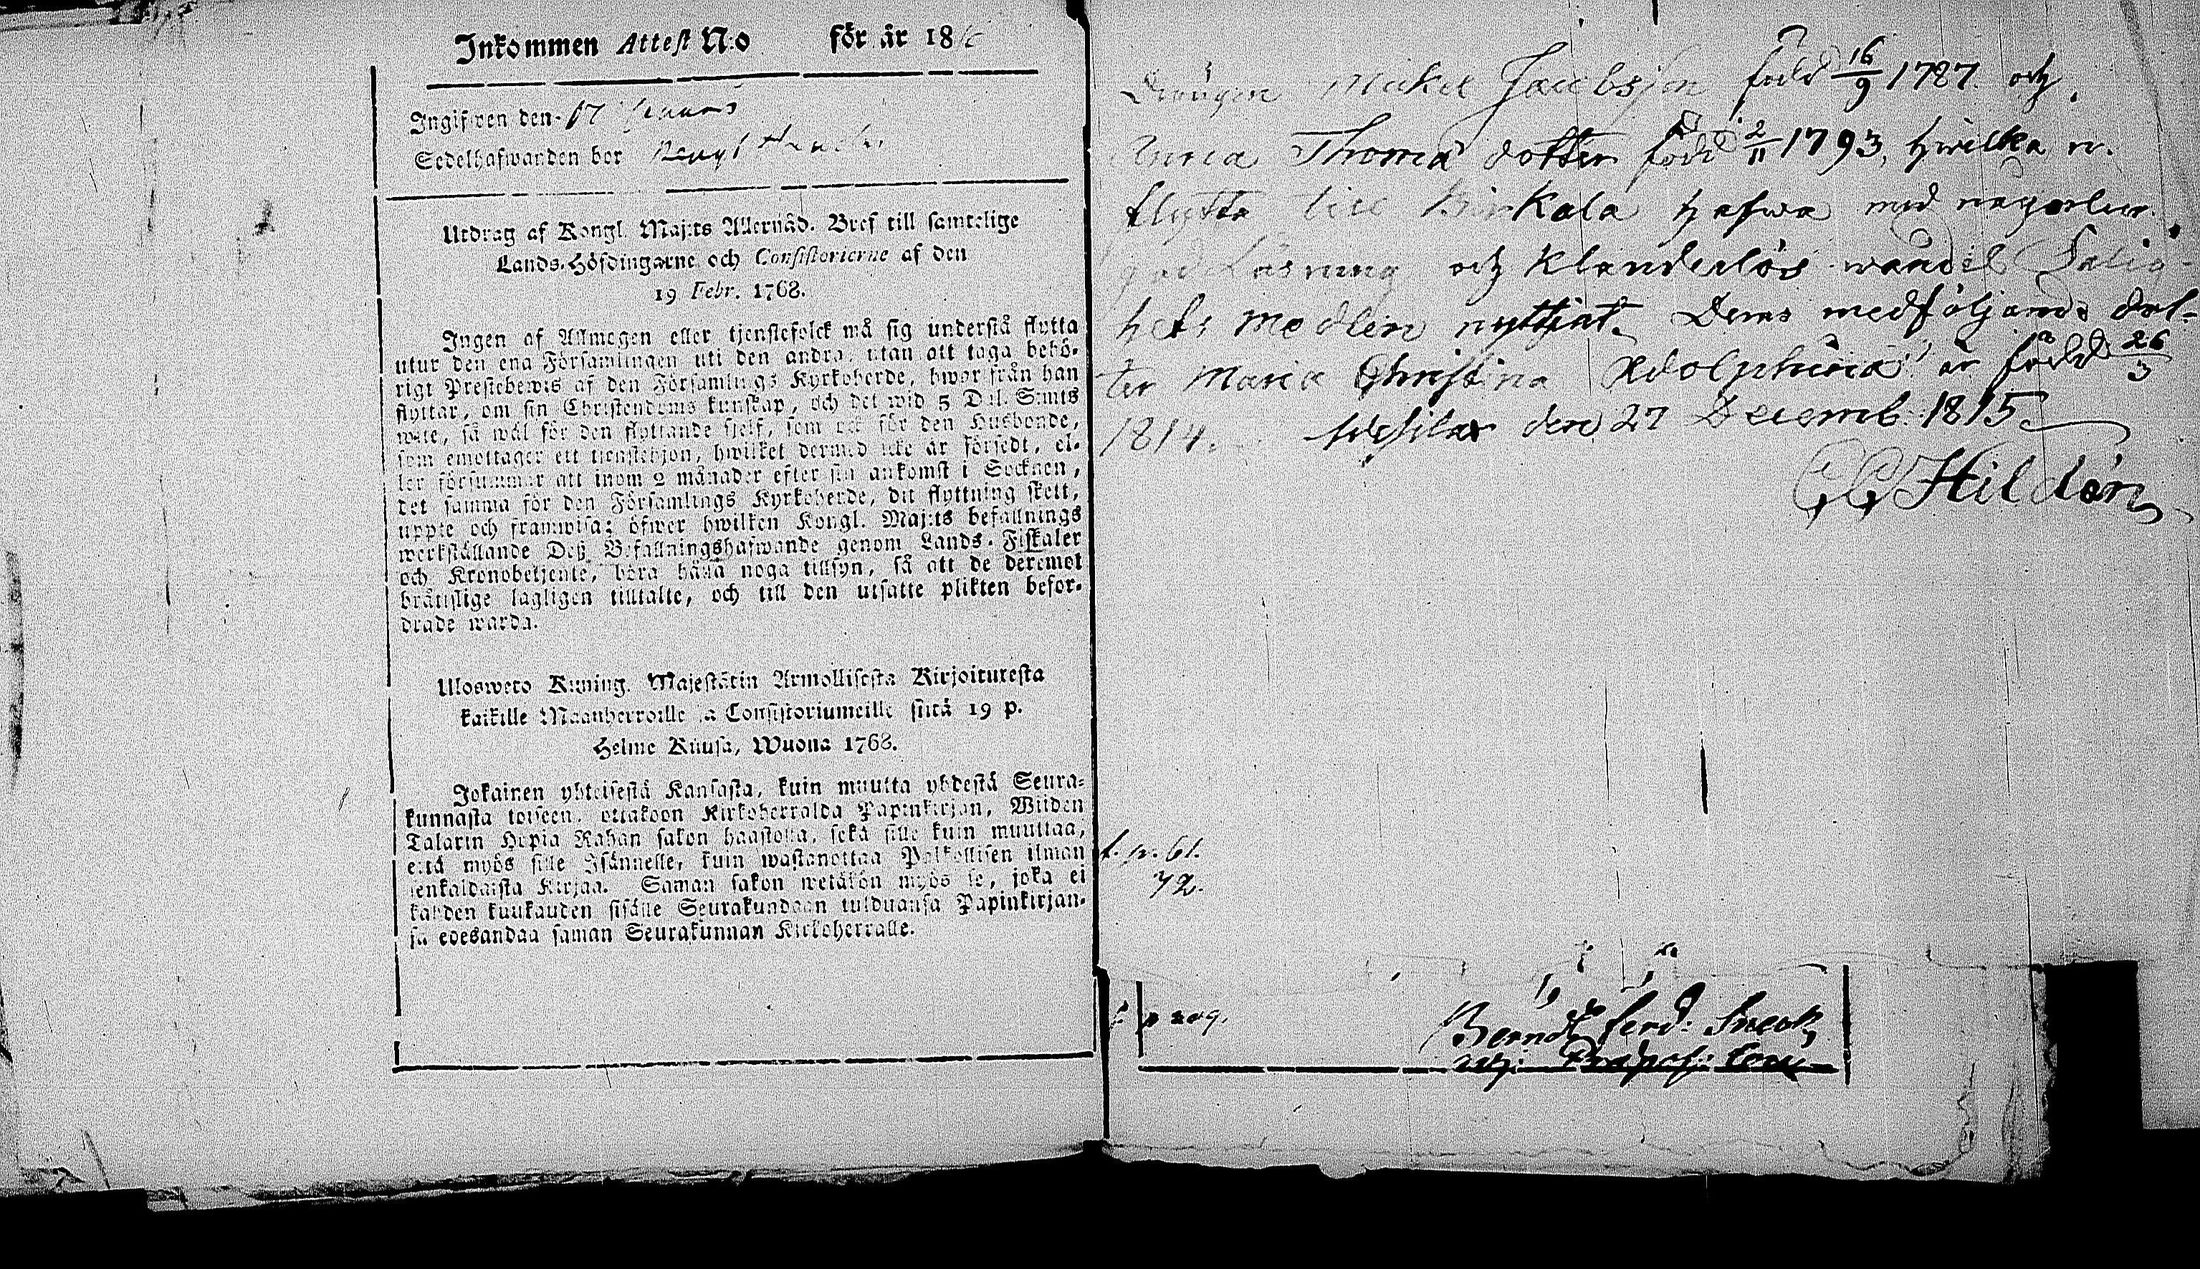 Inkommen Attest N:o för år 18
Ingifwen den 17
Sedelhafwanden bor
Utdrag af Kongl. Maj:ts Allernåd. Bref till samtelige
Lands-Höfdingarne och Consistorierne af den
19 Febr. 1768.
Ingen af Allmogen eller tjenstefolck må sig understå flytta
utur den ena Församlingen uti den andra, utan att taga behö-
rigt Prestebewis af den Församlings Kyrkoherde, hwor från han
flyttar, om sin Christendoms kunskap, och det wid 5 Dal. S:mts
wite, så wäl för den flyttande sjelf, som ock för den Husbonde,
som emottager ett tienstehjon, hwilket dermed icke är försedt, el-
ler försummar att inom 2 månader efter sin ankomst i Socknen,
det samma för den Församlings Kyrkoherde, dit flyttning skett,
uppte och framwisa; öfwer hwilken Kongl. Maj:ts befallnings
werkställande Deß Befallningshafwande genom Lands-Fiskaler
och Kronobetjente, böra hålla noga tillsyn, så att de deremot
bråttslige lagligen tilltalte, och till den utsatte plikten befor-
drade warda.
Ulosweto Kuning. Majestätin Armollisesta Kirjoituresta
kaikille Maanherroille ja Consistoriumeille siitä 19 p.
Helme Kuusa, Wuona 1768.
Jokainen yhteisestä Kansasta, kuin muutta yhdestä Seura-
kunnasta toiseen, ottakoon Kirkoherralda Papinkirjan, Wiiden
Talarin Hopia Rahan sakon haastolla, sekä sille kuin muuttaa,
että myös sille Isännelle, kuin wastanottaa Palkollisen ilman
senkaldaista Kirjaa. Saman sakon wetäkön myös se, joka ei
kahden kuukauden sisälle Seurakundaan tulduansa Papinkirjan-
sa edesandaa saman Seurakunnan Kirkoherralle.
Drängen Mickel Jacobsson född 16/9 1787. och
Anna Thomä dotter född 2/11 1793, hwilka
flytta till Birkala hafwa med någorlun.
god läsning och klanderlös wandel Salig-
hets medlen nyttjat. Deras medföljande dot-
ter Maria Christina Adolphina är född 26/3
1814. Wesilax den 27 Decemb. 1815.
Hildén
f. p. 61.
72.
p 209.
Berndt Ferd: